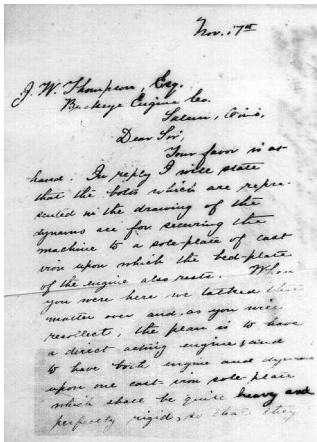 Nov. 17th
J. W. Thompson, Esq.
Buckeye Engine Co.
Salem, Ohio,
Dear Sir,
Your favor is at
hand. In reply I will state
that the bolts which are repre-
sented in the drawing of the
dynamo are for securing the
machine to a sole-plate of cast
iron upon which the bed-plate
of the engine also rests. When
you were here we talked this
matter over and, as you will
recollect, the plan is to have
a direct acting engine and
to have both engine and dynamo
upon one cast-iron sole-plate
which shall be quite heavy and
perfectly rigid, so that they